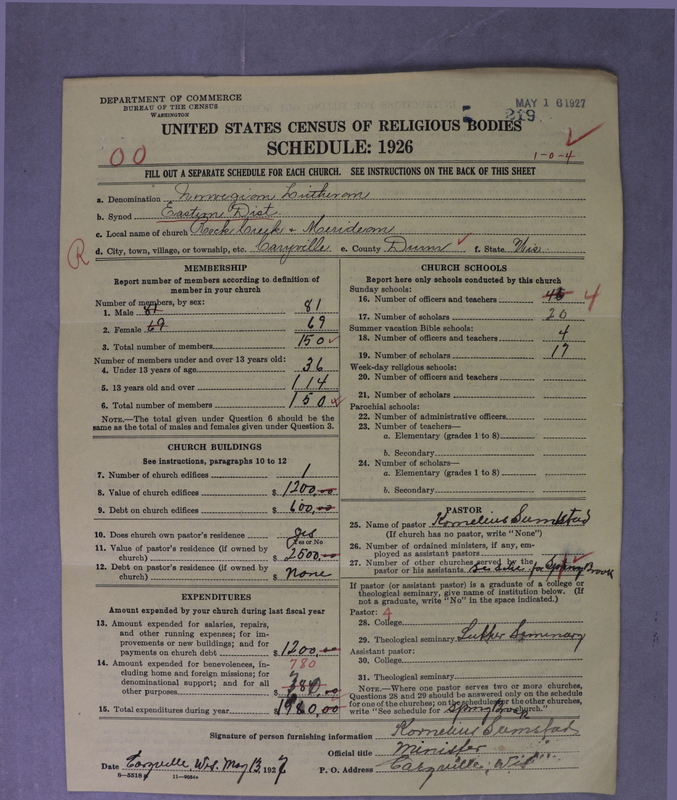 DEPARTMENT OF COMMERCE
BUREAU OF THE CENSUS
WASHINGTON
MAY 16 1927
219
UNITED STATES CENSUS OF RELIGIOUS BODIES
SCHEDULE: 1926
00
1-0-4
FILL OUT A SEPARATE SCHEDULE FOR EACH CHURCH. SEE INSTRUCTIONS ON THE BACK OF THIS SHEET
a. Denomination Norwegian Lutheran
b. Synod Eastern Dist.
c. Local name of church Rock Creek & Merideen
R
d. City, town, village, or township, etc. Caryville e. County Dunn f. State Wis.
MEMBERSHIP
Report number of members according to definition of
member in your church
Number of members, by sex:
1. Male 81 81
2. Female 69 69
3. Total number of members 150
Number of members under and over 13 years old:
4. Under 13 years of age 36
5. 13 years old and over 114
6. Total number of members 150
NOTE.—The total given under Question 6 should be the
same as the total of males and females given under Question 3.
CHURCH BUILDINGS
See instructions, paragraphs 10 to 12
7. Number of church edifices 1
8. Value of church edifices $ 1200.00
9. Debt on church edifices $ 600.00
10. Does church own pastor's residence? yes
Yes or No
11. Value of pastor's residence (if owned by
church) $ 2500.00
12. Debt on pastor's residence (if owned by
church) $ None
EXPENDITURES
Amount expended by your church during last fiscal year
13. Amount expended for salaries, repairs,
and other running expenses; for im-
provements or new buildings; and for
payments on church debt $ 1200.00
780
14. Amount expended for benevolences, in-
cluding home and foreign missions; for
denominational support; and for all
other purposes $ 00
15. Total expenditures during year $ 1980.00
CHURCH SCHOOLS
Report here only schools conducted by this church
Sunday schools:
16. Number of officers and teachers 4
17. Number of scholars 20
Summer vacation Bible schools:
18. Number of officers and teachers 4
19. Number of scholars 17
Week-day religious schools:
20. Number of officers and teachers
21. Number of scholars
Parochial schools:
22. Number of administrative officers
23. Number of teachers—
a. Elementary (grades 1 to 8)
b. Secondary
24. Number of scholars—
a. Elementary (grades 1 to 8)
b. Secondary
PASTOR
25. Name of pastor Kornelius Sumstad
(If church has no pastor, write "None")
26. Number of ordained ministers, if any, em-
ployed as assistant pastors
27. Number of other churches served by the
pastor or his assistants for Spring Brook
If pastor (or assistant pastor) is a graduate of a college or
theological seminary, give name of institution below. (If
not a graduate, write "No" in the space indicated.)
Pastor: 4
28. College
29. Theological seminary Luther Seminary
Assistant pastor:
30. College
31. Theological seminary
NOTE.—Where one pastor serves two or more churches,
Questions 28 and 29 should be answered only on the schedule
for one of the churches; on the schedules for the other churches,
write "See schedule for Spring Brook church."
Signature of person furnishing information Kornelius Sumstad
Official title Minister
Date Caryville, Wis. May 13, 1927 P. O. Address Caryville, Wis
8—5518 11—9054